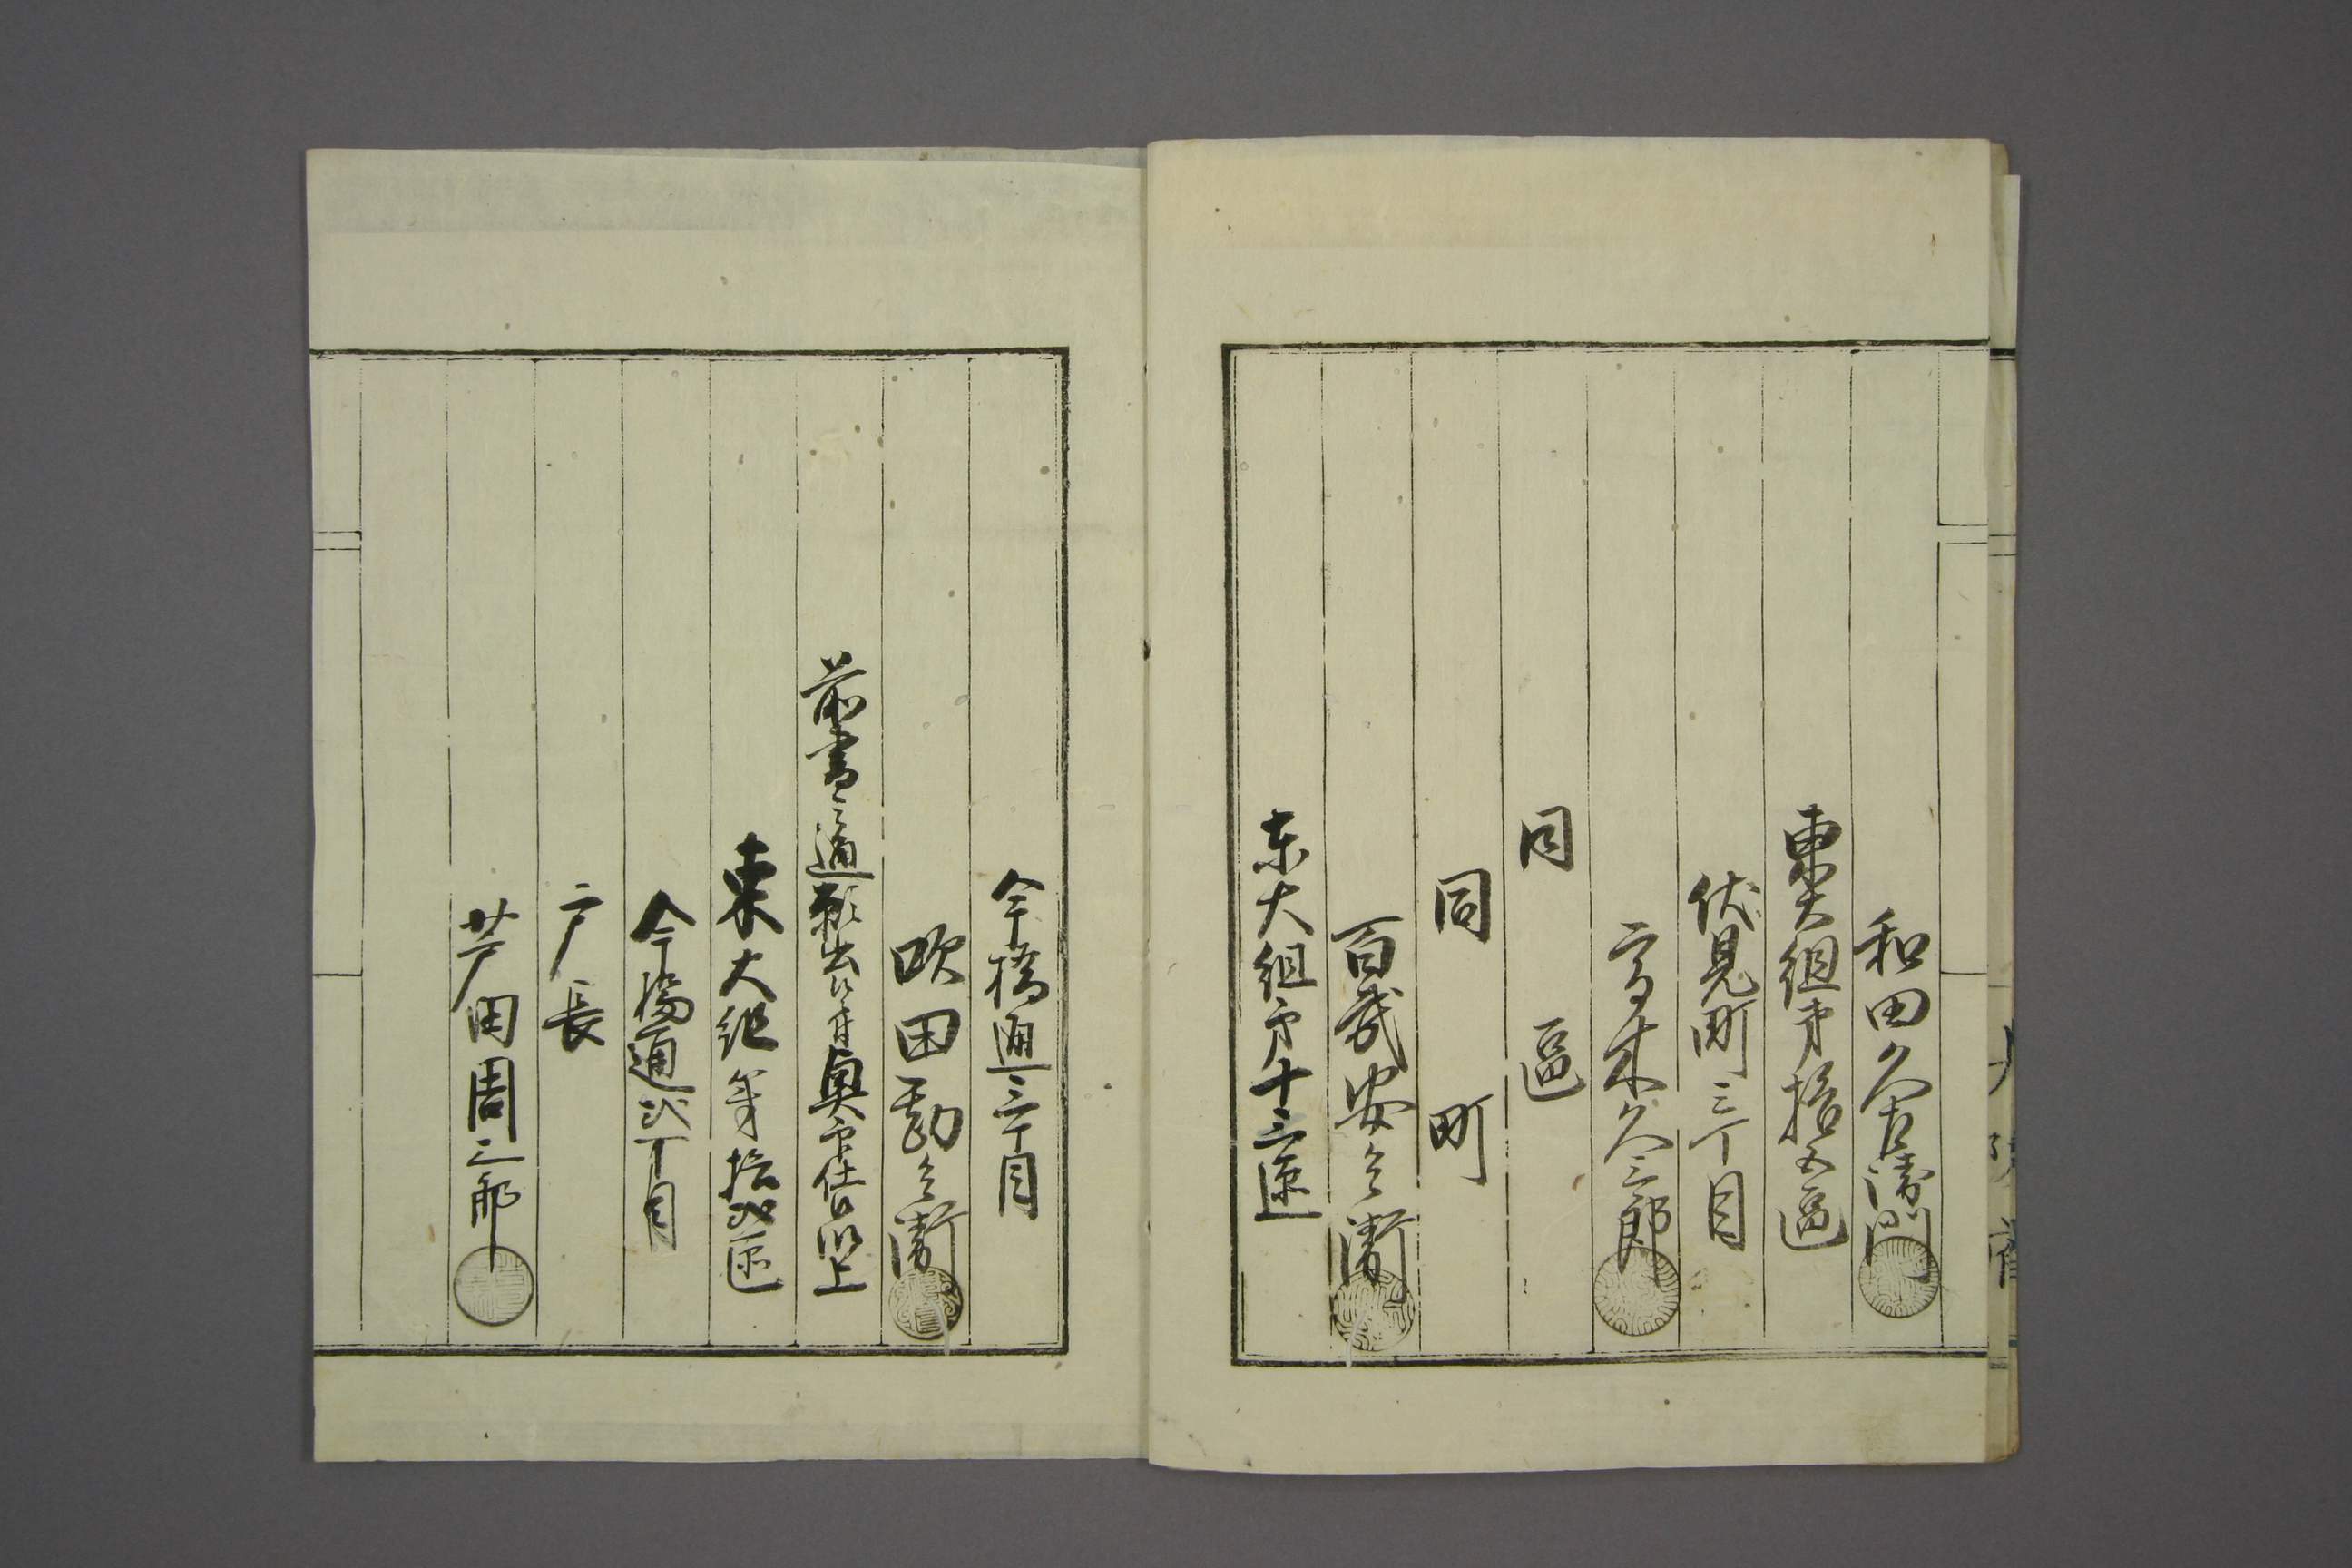 和田久左衛門
東大組第拾五區
伏見町三丁目
高木久三郎
同區
同町
百武安兵衛
东大組第十三區
今橋通三丁目
吹田勘兵衛
前書之通願出候ニ付奥印仕候以上
東大組第拾弐區
今橋通弐丁目
戸長
芦田周三郎